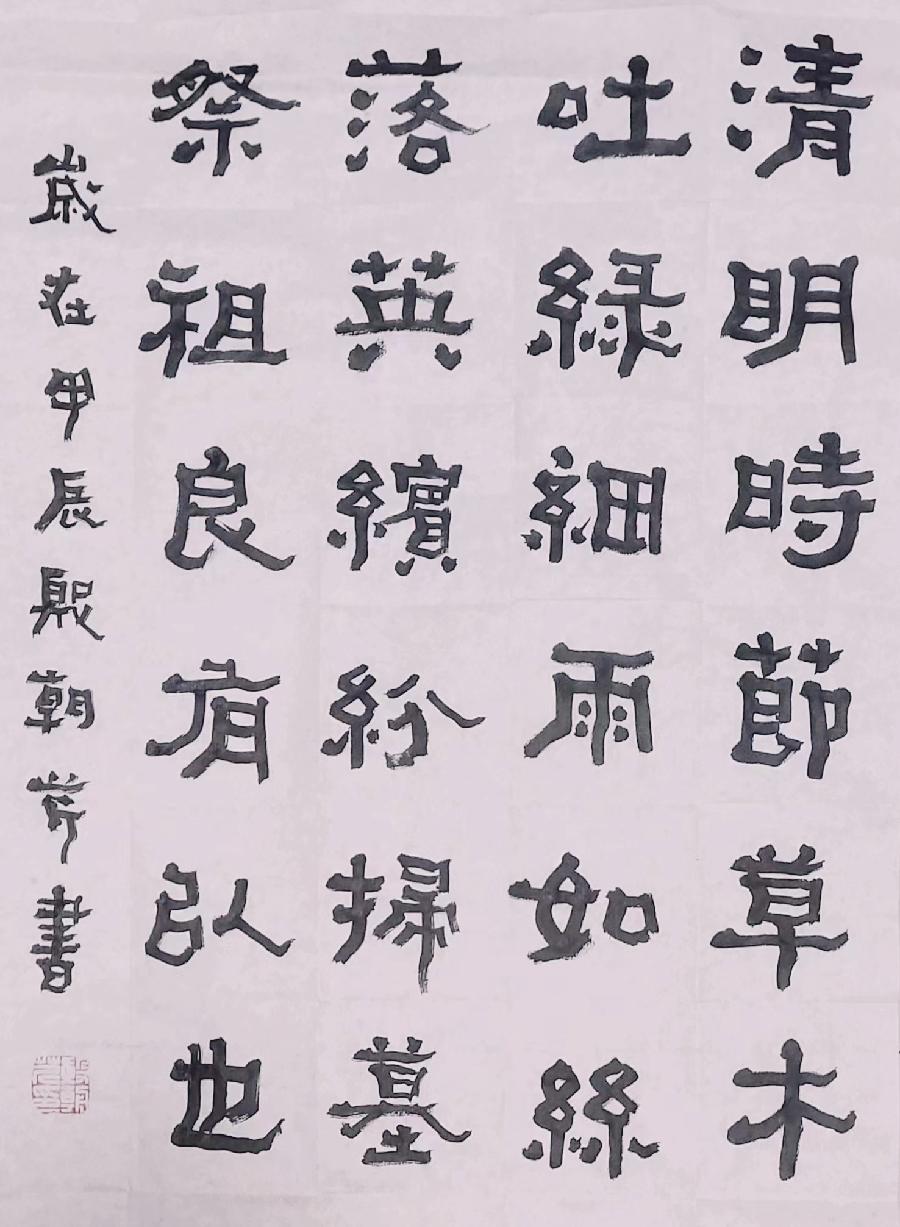 清明時節草木
吐緑細雨如絲
落英繽紛掃墓
祭祖良有以也
歲在甲辰殷朝岸書